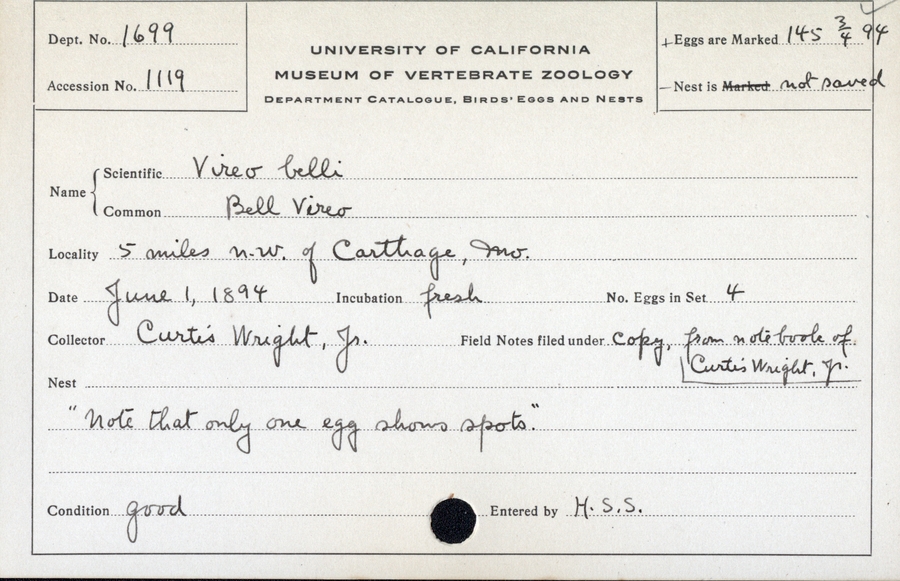 Dept. No. 1699
Accession No. 1119
UNIVERSITY OF CALIFORNIA
MUSEUM OF VERTEBRATE ZOOLOGY
DEPARTMENT CATALOGUE, BIRDS' EGGS AND NESTS
+Eggs are Marked 145 3/4 94
—Nest is Marked not saved
Name
Scientific Vireo belli
Common Bell Vireo
Locality 5 miles n.w. of Carthage, Mo.
Date June 1, 1894 Incubation fresh No. Eggs in Set 4
Collector Curtis Wright, Jr. Field Notes filed under copy, from notebook of
Curtis Wright, Jr.
Nest
"Note that only one egg shows spots."
Condition good Entered by H.S.S.